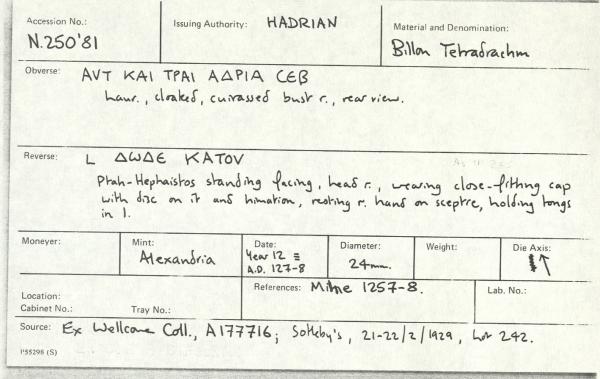 Accession No.:
N.250'81
Issuing Authority: HADRIAN
Material and Denomination:
Billon Tetradrachm
Obverse: ΑVΤ ΚΑΙ ΤΡΑΙ ΑΔΡΙΑ CЄΒ
Laur., cloaked, cuirassed bust r., rear view.
Reverse: L ΔωΔΕ ΚΑΤΟV
Ptah-Hephaistos standing facing, head r., wearing close-fitting cap
with disc on it and himation, resting r. hand on sceptre, holding tongs
in l.
Moneyer:
Mint:
Alexandria
Date:
Year 12 ≡
A.D. 127-8
Diameter:
24mm.
Weight:
Die Axis:
↑
Location:
Cabinet No.: Tray No.:
References: Milne 1257-8.
Lab. No.:
Source: Ex Wellcome Coll., A177716; Sotheby's, 21-22/2/1929, Lot 242.
P55298 (S)